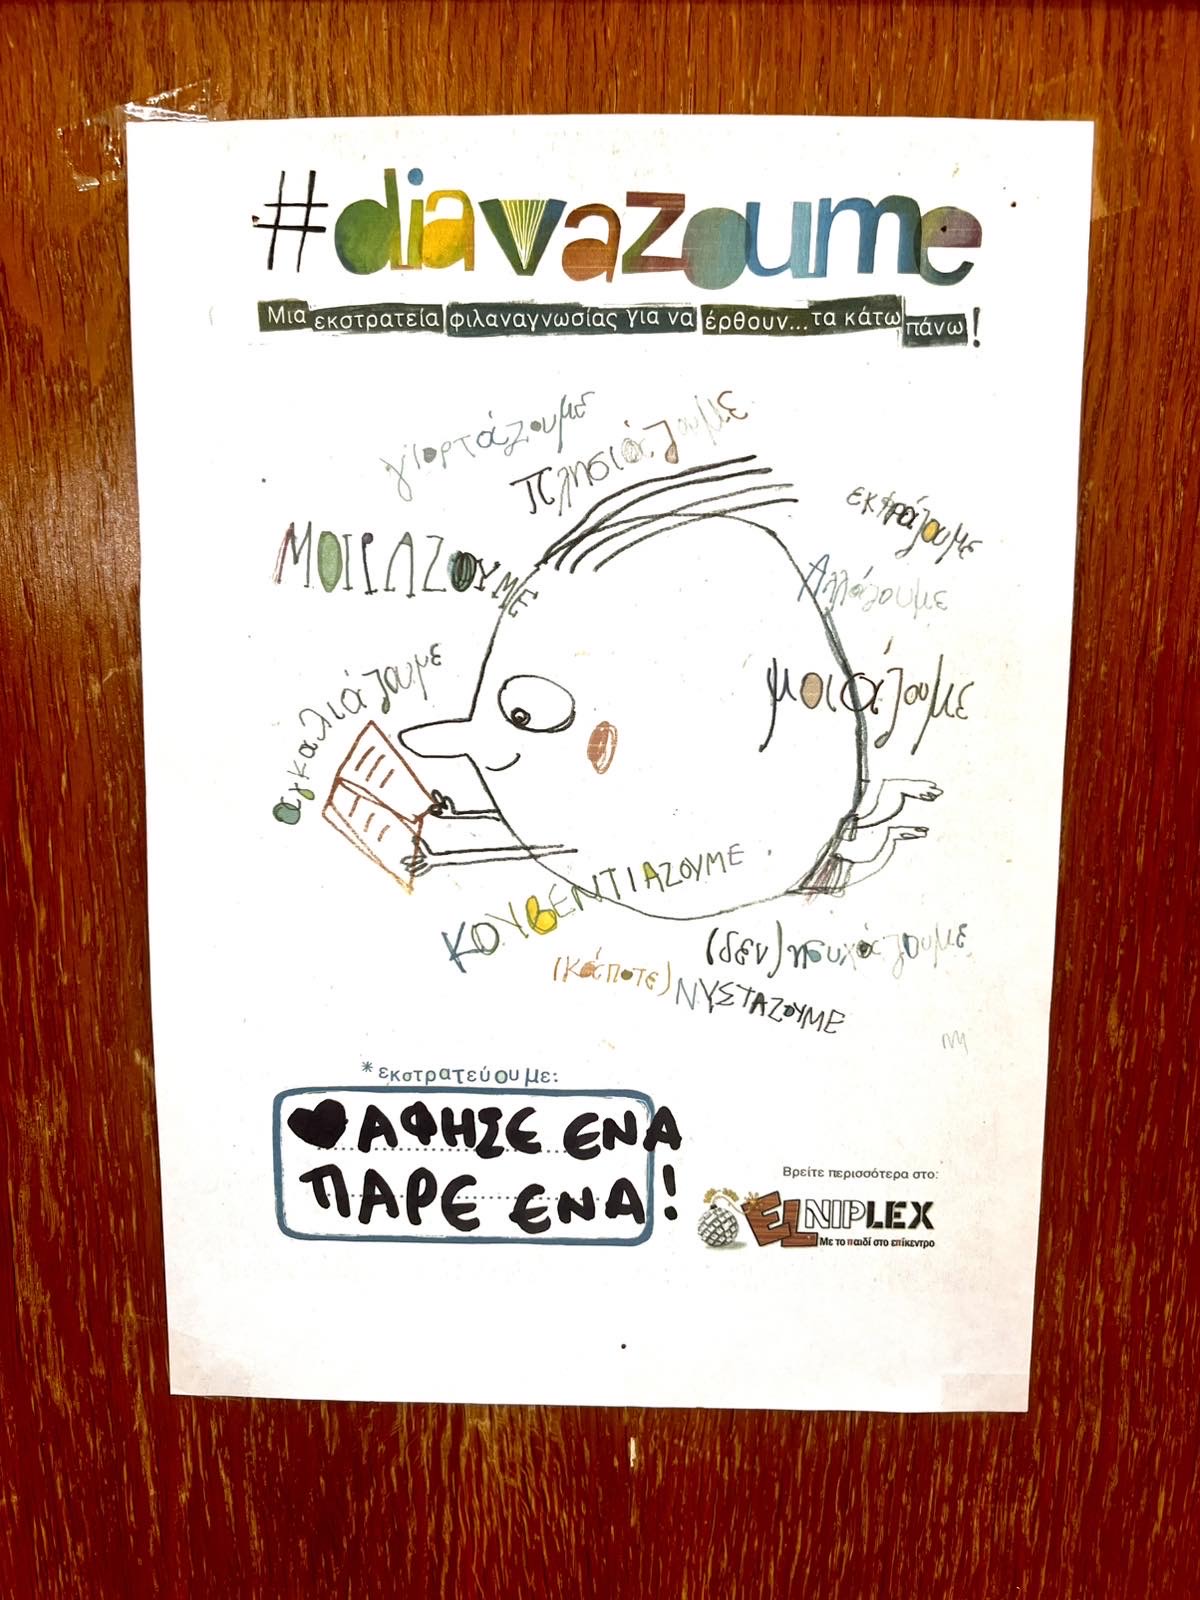 #diavazoume
Μια εκστρατεία φιλαναγνωσίας για να έρθουν... τα κάτω πάνω!
γιορτάζουμε
πλησιάζουμε
εκφράζουμε
ΜΟΙΡΑΖΟΥΜΕ
Αλλάζουμε
αγκαλιάζουμε
μοιάζουμε
ΚΟΥβΕΝΤΙΑΖΟΥΜΕ
(δεν) ησυχάζουμε
(κάποτε) ΝΥΣΤΑΖΟΥΜΕ
*εκστρατεύουμε:
♥ΑΦΗΣΕ ΕΝΑ
ΠΑΡΕ ΕΝΑ!
Βρείτε περισσότερα στο:
ELNIPLEX
Με το παιδί στο επίκεντρο